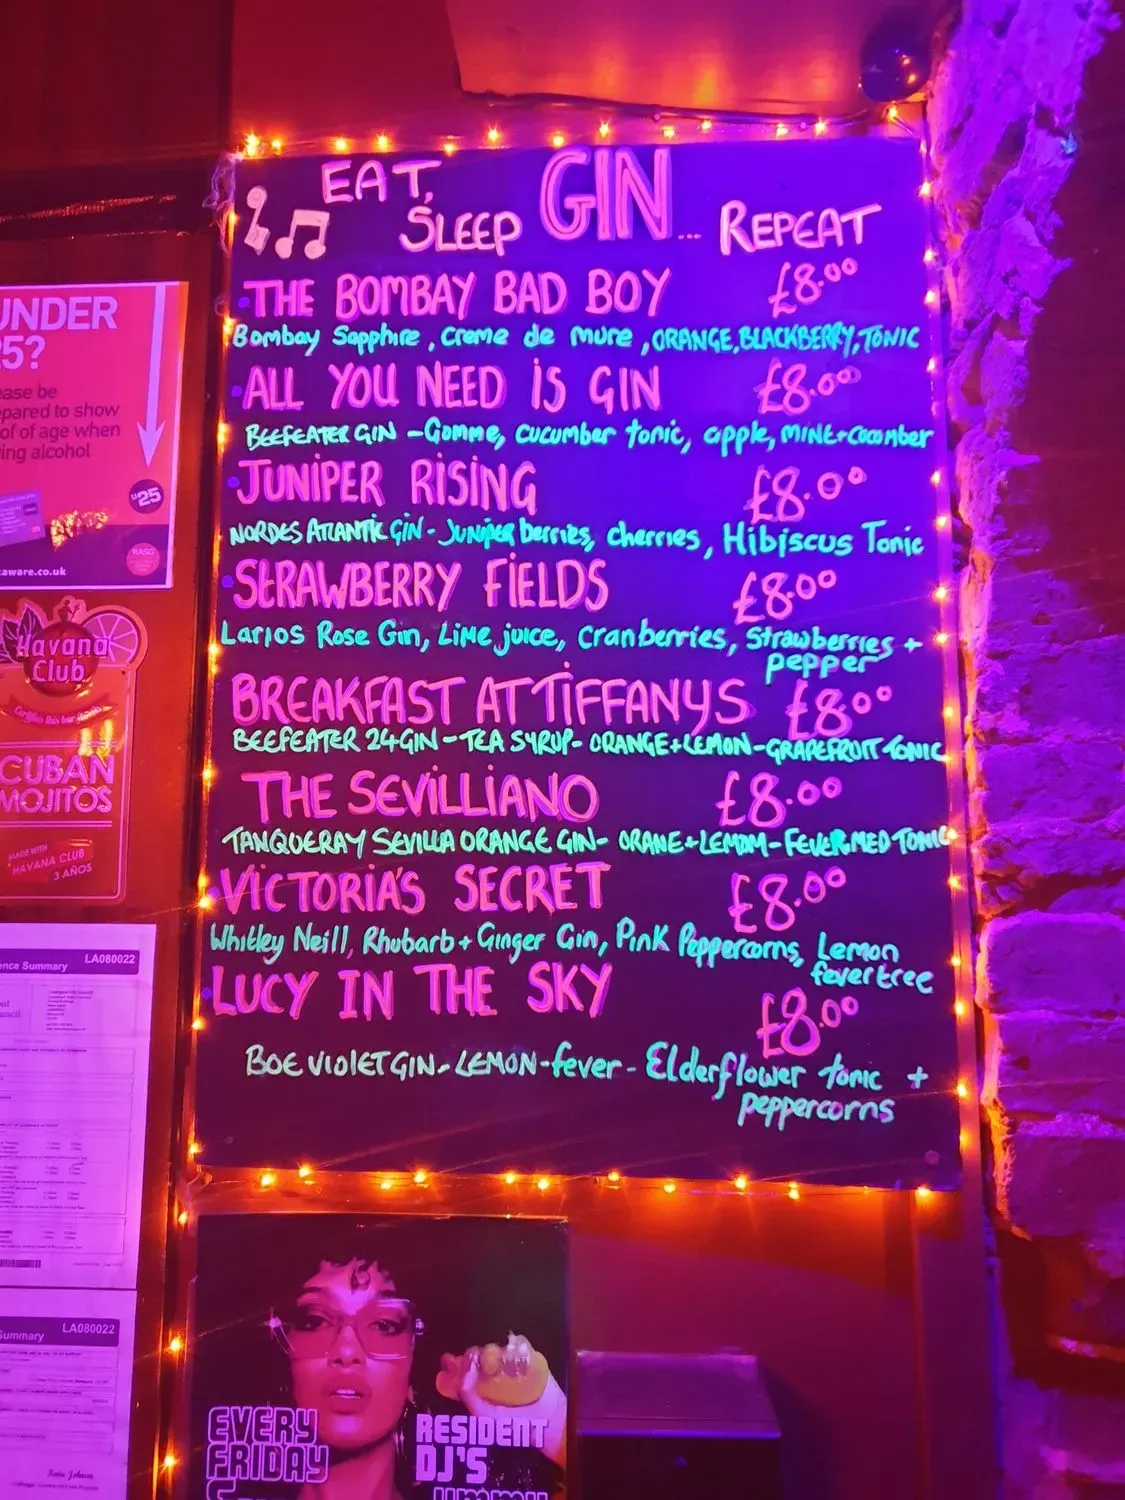 EAT, SLEEP GIN... REPEAT
THE BOMBAY BAD BOY £8.00
Bombay Sapphire, Creme de mure, ORANGE, BLACKBERRY, TONIC
ALL YOU NEED IS GIN £8.00
BEEFEATER GIN - Gomme, cucumber tonic, apple, MINT + cucumber
JUNIPER RISING £8.00
NORDES ATLANTIC GIN - JUNIPER berries, cherries, Hibiscus Tonic
STRAWBERRY FIELDS £8.00
Larios Rose Gin, Lime juice, Cranberries, Strawberries +
pepper
BREAKFAST AT TIFFANYS £8.00
BEEFEATER 24 GIN - TEA SYRUP - ORANGE + LEMON - GRAPEFRUIT TONIC
THE SEVILLIANO £8.00
TANQUERAY SEVILLA ORANGE GIN - ORANE + LEMOM - FEVER MED TONIC
VICTORIA'S SECRET £8.00
Whitley Neill, Rhubarb + Ginger Gin, Pink Peppercorns, Lemon
fevertree
LUCY IN THE SKY £8.00
BOE VIOLET GIN - LEMON - fever - Elderflower tonic +
peppercorns
UNDER
25?
ease be
epared to show
of of age when
ing alcohol
u25
RASG
aware.co.uk
Havana
Club
Certifies this bar
CUBAN
MOJITOS
MADE WITH
HAVANA CLUB
3 AÑOS
ence Summary LA080022
Summary LA080022
EVERY
FRIDAY
RESIDENT
DJ'S